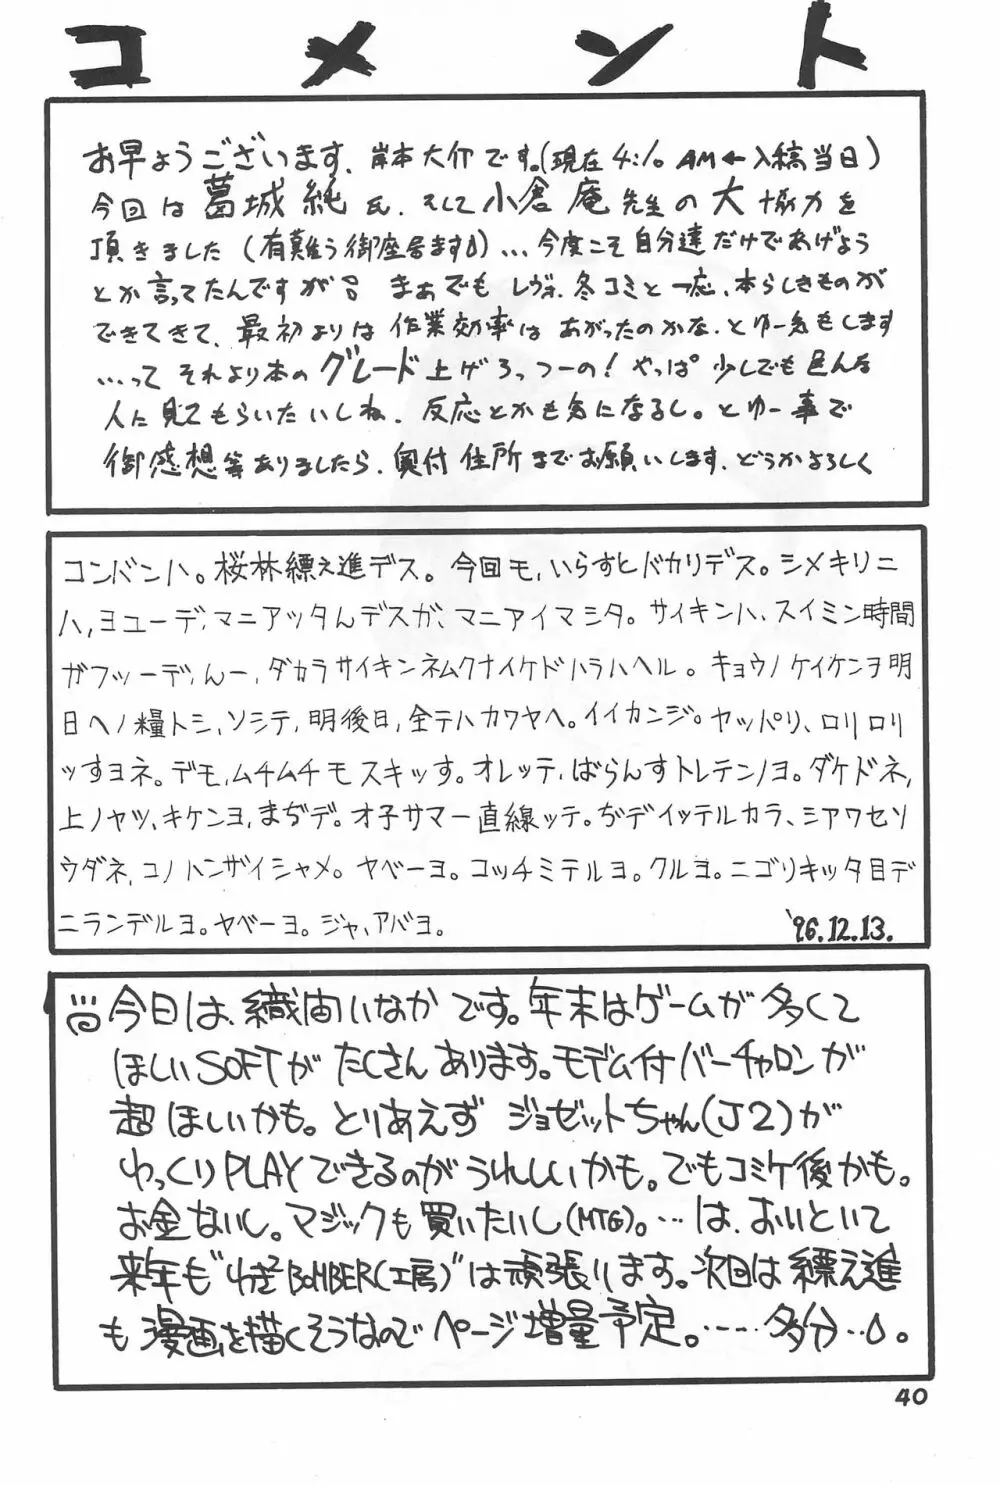 コメント
お早ようございます、岸本大介です。(現在4:10 AM←入稿当日)
今回は葛城純氏、そして小倉庵先生の大協力を
頂きました(有難う御座居ます)…今度こそ自分達だけであげよう
とか言ってたんですが まぁでもレヴォ、冬コミと一応、本らしきものが
できてきて、最初よりは作業効率はあがったのかな、とゆー気もします
…ってそれより本のグレード上げろっつーの!やっぱ少しでも色んな
人に見てもらいたいしね、反応とかも気になるし。とゆー事で
御感想等ありましたら、奥付住所までお願いします、どうかよろしく
コンバンハ。桜林縹え進デス。今回モ、いらすとバカリデス。シメキリニ
ハ、ヨユーデ、マニアッタんデスガ、マニアイマシタ。サイキンハ、スイミン時間
ガフツーデ、んー、ダカラサイキンネムクナイケドハラハヘル。キョウノケイケンヲ明
日ヘノ糧トシ、ソシテ、明後日、全テハカワヤヘ。イイカンジ。ヤッパリ、ロリロリ
ッすヨネ。デモ、ムチムチモスキッす。オレッテ、ばらんすトレテンノヨ。ダケドネ、
上ノヤツ、キケンヨ、まぢデ。オ子サマー直線ッテ。ぢデイッテルカラ、シアワセソ
ウダネ、コノハンザイシャメ。ヤベーヨ。コッチミテルヨ。クルヨ。ニゴリキッタ目デ
ニランデルヨ。ヤベーヨ。ジャ、アバヨ。 '96.12.13.
今日は、織宙いなかです。年末はゲームが多くて
ほしいSOFTがたくさんあります。モデム付バーチャロンが
超ほしいかも。とりあえずジョゼットちゃん(J2)が
ゆっくりPLAYできるのがうれしいかも。でもコミケ後かも。
お金ないし。マジックも買いたいし(MTG)。…は、おいといて
来年も"わざBOMBER(工房)"は頑張ります。次回は縹え進
も漫画を描くそうなのでページ増量予定。……多分…。
40